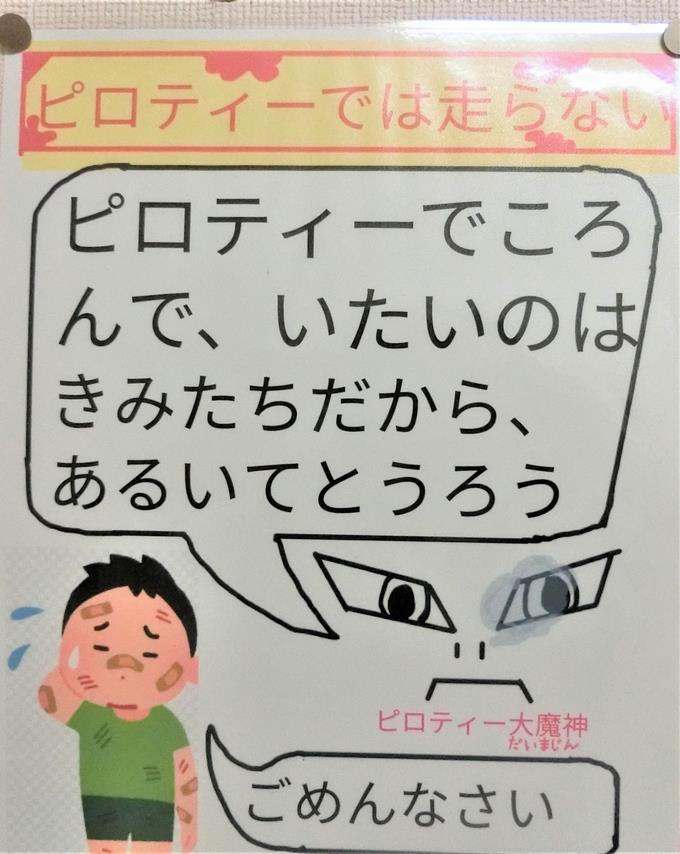 ピロティーでは走らない
ピロティーでころ
んで、いたいのは
きみたちだから、
あるいてとうろう
ピロティー大魔神
だいまじん
ごめんなさい